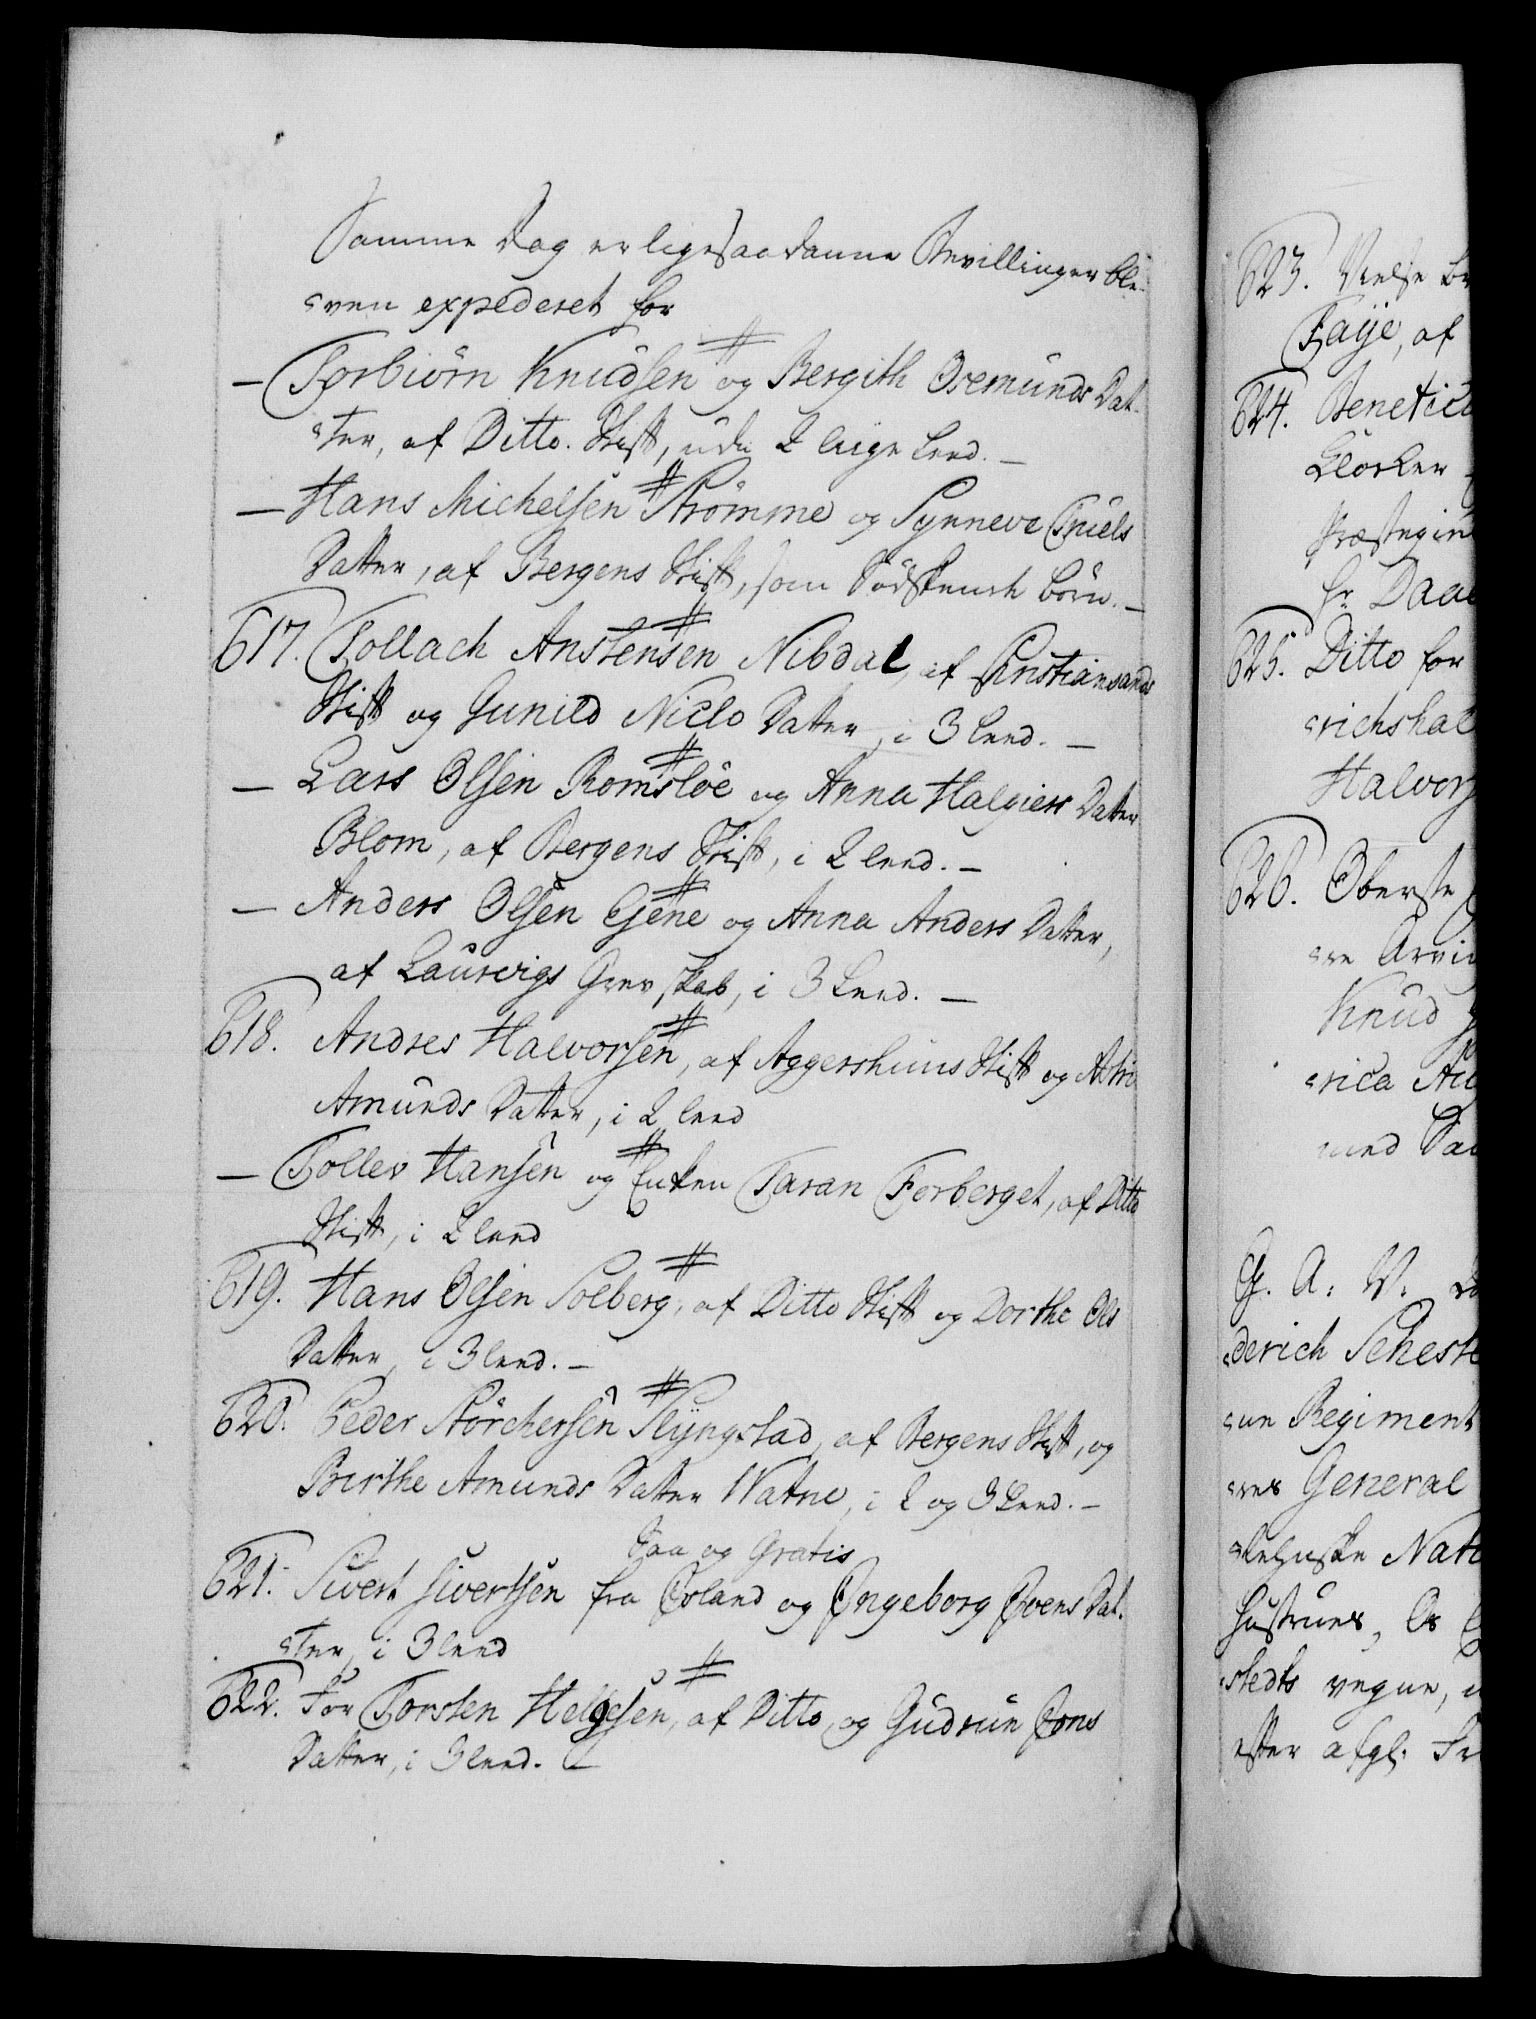 Samme Dag er ligesaadanne Bevillinger ble-
ven expederet for
— Torbiörn Knudsen og Bergith Osemunds Dat-
ter, af Ditto Stift, udi 2 liige Leed. —
— Hans Michelsen Strömme og Synneve Truels
Datter, af Bergens Stift, som Södskende börn. —
617. Tollach Anstensen Nibdal, af Christiansands
Stift og Gunild Niels Datter, i 3 Leed. —
— Lars Olsen Romslöe og Anna Halgiers Datter
Blom, af Bergens Stift, i 2 Leed. —
— Anders Olsen Gjene og Anna Anders Datter,
af Laurvigs Grevskab, i 3 Leed. —
618. Andres Halvorsen, af Aggershuus Stift og Astri
Amunds Datter, i 2 Leed
— Tollev Hansen og Enken Taran Torberget, af Ditto
Stift, i 2 Leed
619. Hans Olsen Solberg, af Ditto Stift og Dorthe Ols
Datter, i 3 Leed. —
620. Peder Störchersen Slyngstad, af Bergens Stift, og
Birthe Amunds Datter Watne, i 2 og 3 Leed. —
Saa og Gratis
621. Sivert Sivertsen fra Örland og Ingeborg Ivens Dat-
ter, i 3 Leed
622. For Torsten Helgesen, af Ditto, og Gudrun Jons
Datter, i 3 Leed. —
623. Vielse
Faye, af
624. Benefice
Klocker
Præstegie
Hr Daae
625. Ditto for
richshal
Halvors
626. Oberste
re Arvi
Knud
rica Au
med
G. A: V.
derich Schest
Regiment
res General
Nat
Hustrues,
stedts vegne,
efter afgl. Fr